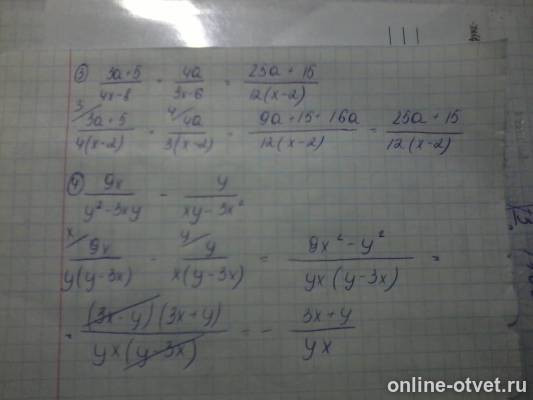 ③ (3a+5)/(4x-8) + 4a/(3x-6) = (25a+15)/(12(x-2))
3/ (3a+5)/(4(x-2)) + 4/ 4a/(3(x-2)) = (9a+15+16a)/(12(x-2)) = (25a+15)/(12(x-2))
④ 9x/(y²-3xy) - y/(xy-3x²)
x/ 9x/(y(y-3x)) - y/ y/(x(y-3x)) = (9x²-y²)/(yx(y-3x)) =
= (3x-y)(3x+y)/(yx(y-3x)) = - (3x+y)/(yx)
online-otvet.ru